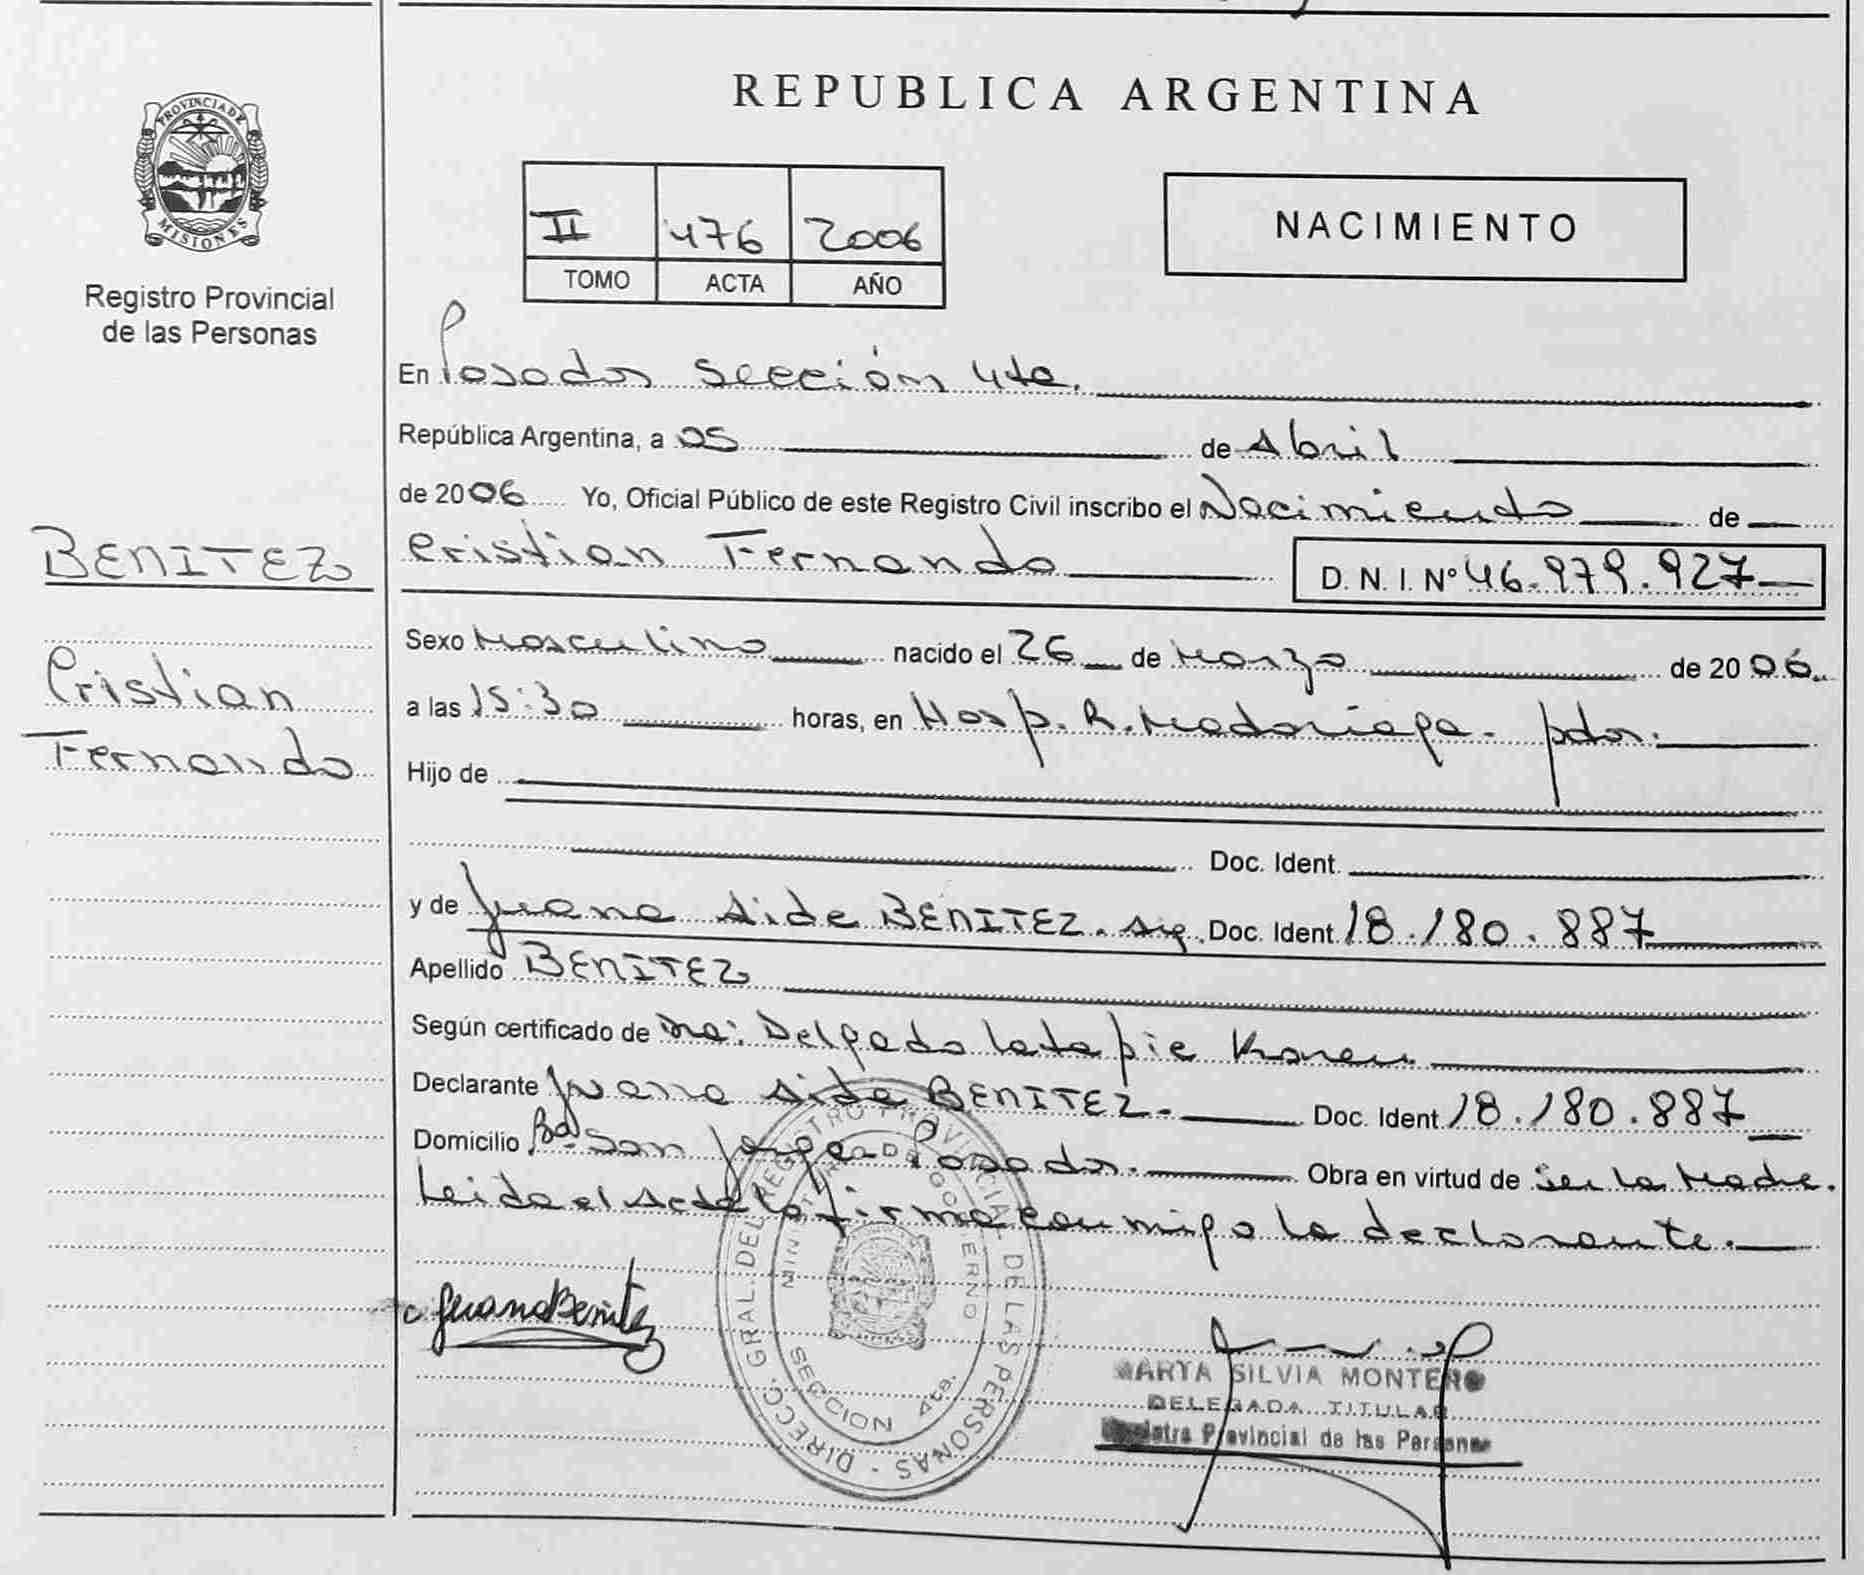 REPUBLICA ARGENTINA
PROVINCIA DE
MISIONES
Registro Provincial
de las Personas
II 476 2006
TOMO ACTA AÑO
NACIMIENTO
En Posadas Sección 4ta.
República Argentina, a 05 de Abril
de 2006 Yo, Oficial Público de este Registro Civil inscribo el Nacimiento de
BENITEZ
Cristian Fernando D. N. I. Nº 46.979.927
Cristian
Fernando
Sexo Masculino nacido el 26 de Marzo de 2006
a las 15:30 horas, en Hosp. R. Madariaga. pdas.
Hijo de
Doc. Ident.
y de Juana Aide BENITEZ. Arg. Doc. Ident 18.180.887
Apellido BENITEZ
Según certificado de Dra: Delgado Latapie Karen
Declarante Juana Aide BENITEZ. Doc. Ident 18.180.887
Domicilio Bº San Jorge Posadas. Obra en virtud de Ser la Madre.
Leida el Acta la firma conmigo la declarante.
Juana Benitez
DIRECC. GRAL. DEL REGISTRO PROVINCIAL DE LAS PERSONAS
MINISTERIO DE GOBIERNO
SECCION 4ta.
MARTA SILVIA MONTERO
DELEGADA TITULAR
Registro Provincial de las Personas